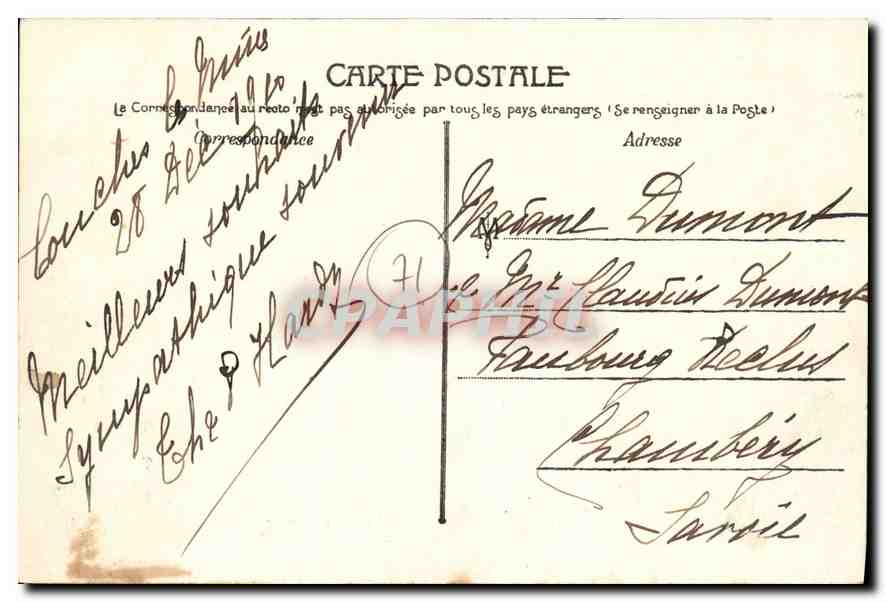 CARTE POSTALE
La Correspondance au recto n'est pas autorisée par tous les pays étrangers (Se renseigner à la Poste)
Correspondance
Adresse
Couches les Mines
28 Déc 1910
Meilleurs souhaits
Sympathique souvenir
Hardy
71
CPAPHIL
Madame Dumont
Mr Claudius Dumont
Faubourg Reclus
Chambéry
Savoie